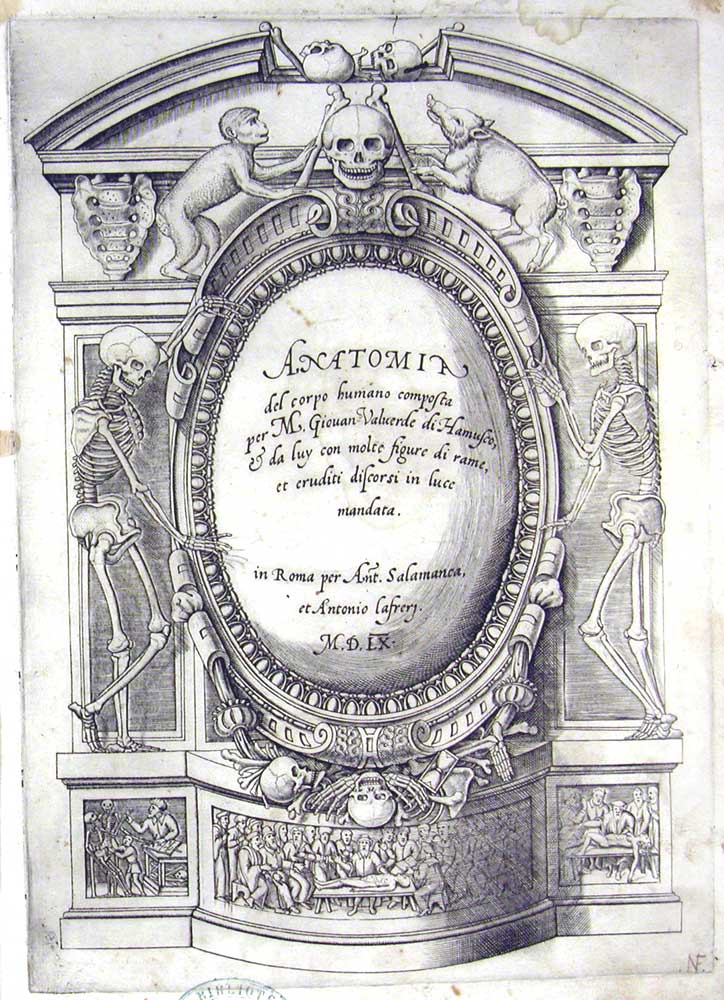 ANATOMIA
del corpo humano composta
per M. Giouan Valuerde di Hamusco,
& da luy con molte figure di rame,
et eruditi discorsi in luce
mandata.
in Roma per Ant. Salamanca,
et Antonio lafrerj.
M.D.LX.
BIBLIOTE
NF.